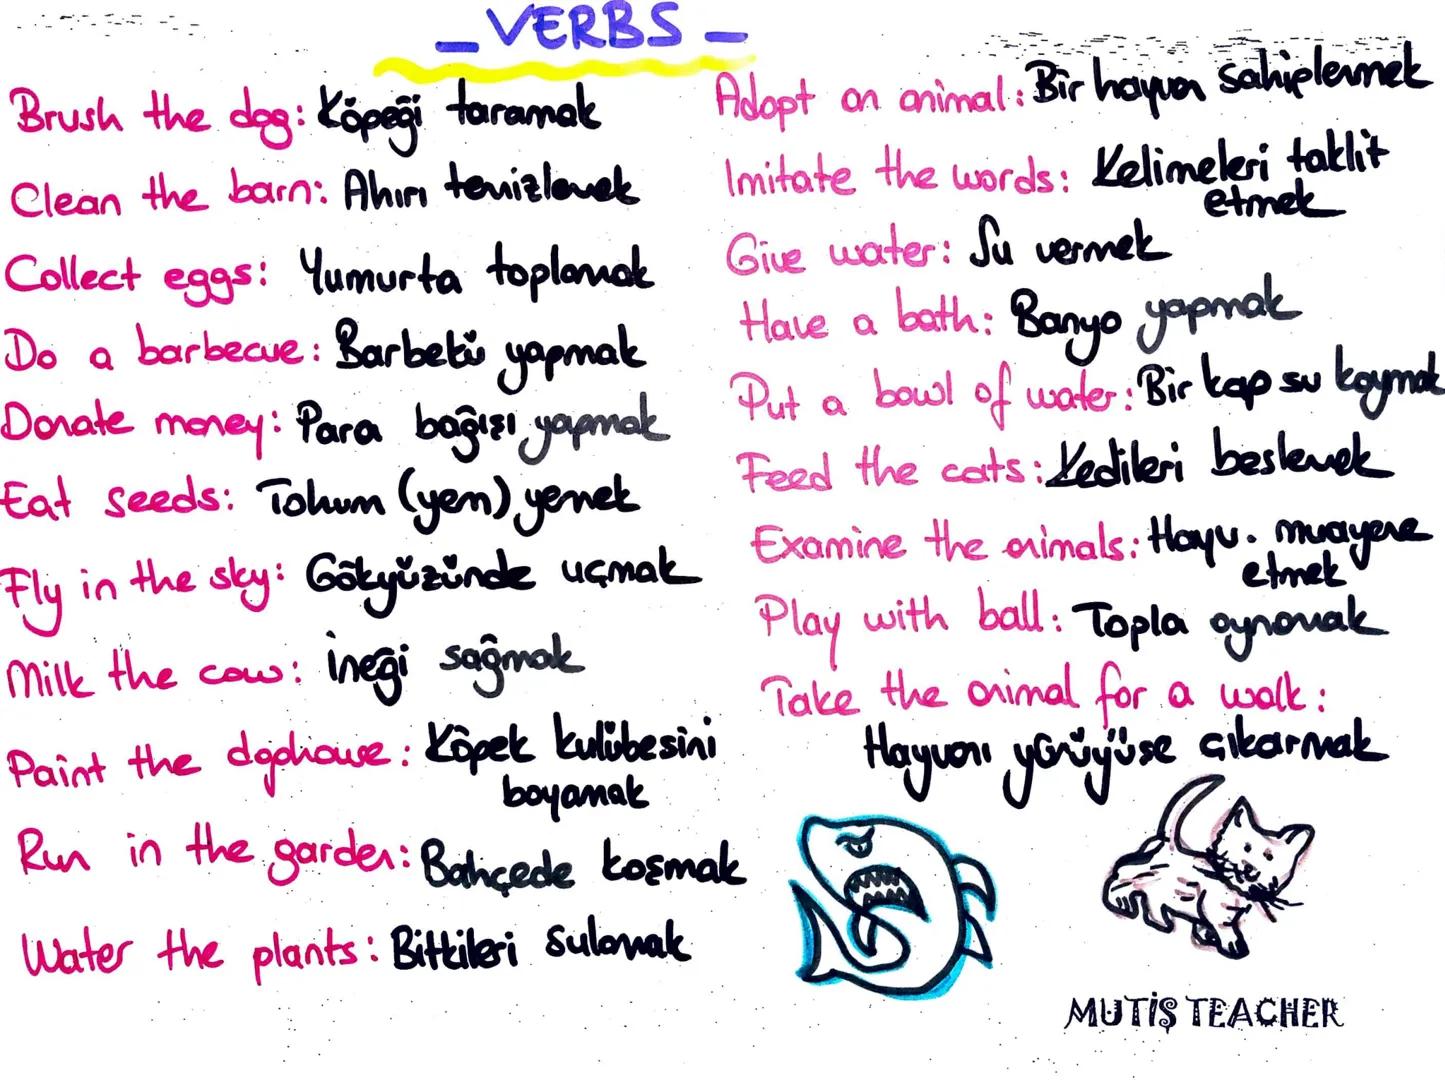 _ VERBS _
Brush the dog: Köpeği taramak
Clean the barn: Ahırı temizlemek
Collect eggs: Yumurta toplamak
Do a barbecue: Barbekü yapmak
Donate money: Para bağışı yapmak
Eat seeds: Tohum (yem) yemek
Fly in the sky: Gökyüzünde uçmak
Milk the cow: İneği sağmak
Paint the doghouse: Köpek kulübesini
boyamak
Run in the garden: Bahçede koşmak
Water the plants: Bitkileri sulamak
Adopt an animal: Bir hayvan sahiplenmek
Imitate the words: Kelimeleri taklit
etmek
Give water: Su vermek
Have a bath: Banyo yapmak
Put a bowl of water: Bir kap su koymak
Feed the cats: Kedileri beslemek
Examine the animals: Hayv. muayene
etmek
Play with ball: Topla oynamak
Take the animal for a walk:
Hayvanı yürüyüşe çıkarmak
MUTİŞ TEACHER